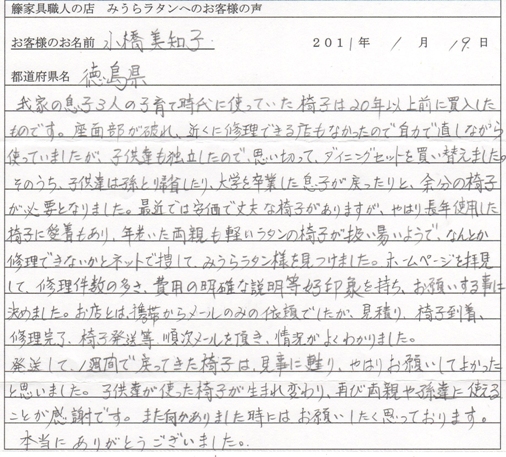 籐家具職人の店 みうらラタンへのお客様の声
お客様のお名前 小橋美知子 2011年 1月 19日
都道府県名 徳島県
我家の息子3人の子育て時代に使っていた椅子は20年以上前に買入した
ものです。座面部が破れ、近くに修理できる店もなかったので自力で直しながら
使っていましたが、子供達も独立したので、思い切って、ダイニングセットを買い替えました。
そのうち、子供達は孫と帰省したり、大学を卒業した息子が戻ったりと、余分の椅子
が必要となりました。最近では安価で丈夫な椅子がありますが、やはり長年使用した
椅子に愛着もあり、年老いた両親も軽いラタンの椅子が扱い易いようで、なんとか
修理できないかとネットで捜して、みうらラタン様を見つけました。ホームページを拝見
して、修理件数の多さ、費用の明確な説明等好印象を持ち、お願いする事に
決めました。お店とは、携帯からメールのみの依頼でしたが、見積り、椅子到着、
修理完了、椅子発送等、順次メールを頂き、情況がよくわかりました。
発送して、1週間で戻ってきた椅子は、見事に甦り、やはりお願いしてよかった
と思いました。子供達が使った椅子が生まれ変わり、再び両親や孫達に使える
ことが感謝です。また何かありました時にはお願いしたく思っております。
本当にありがとうございました。